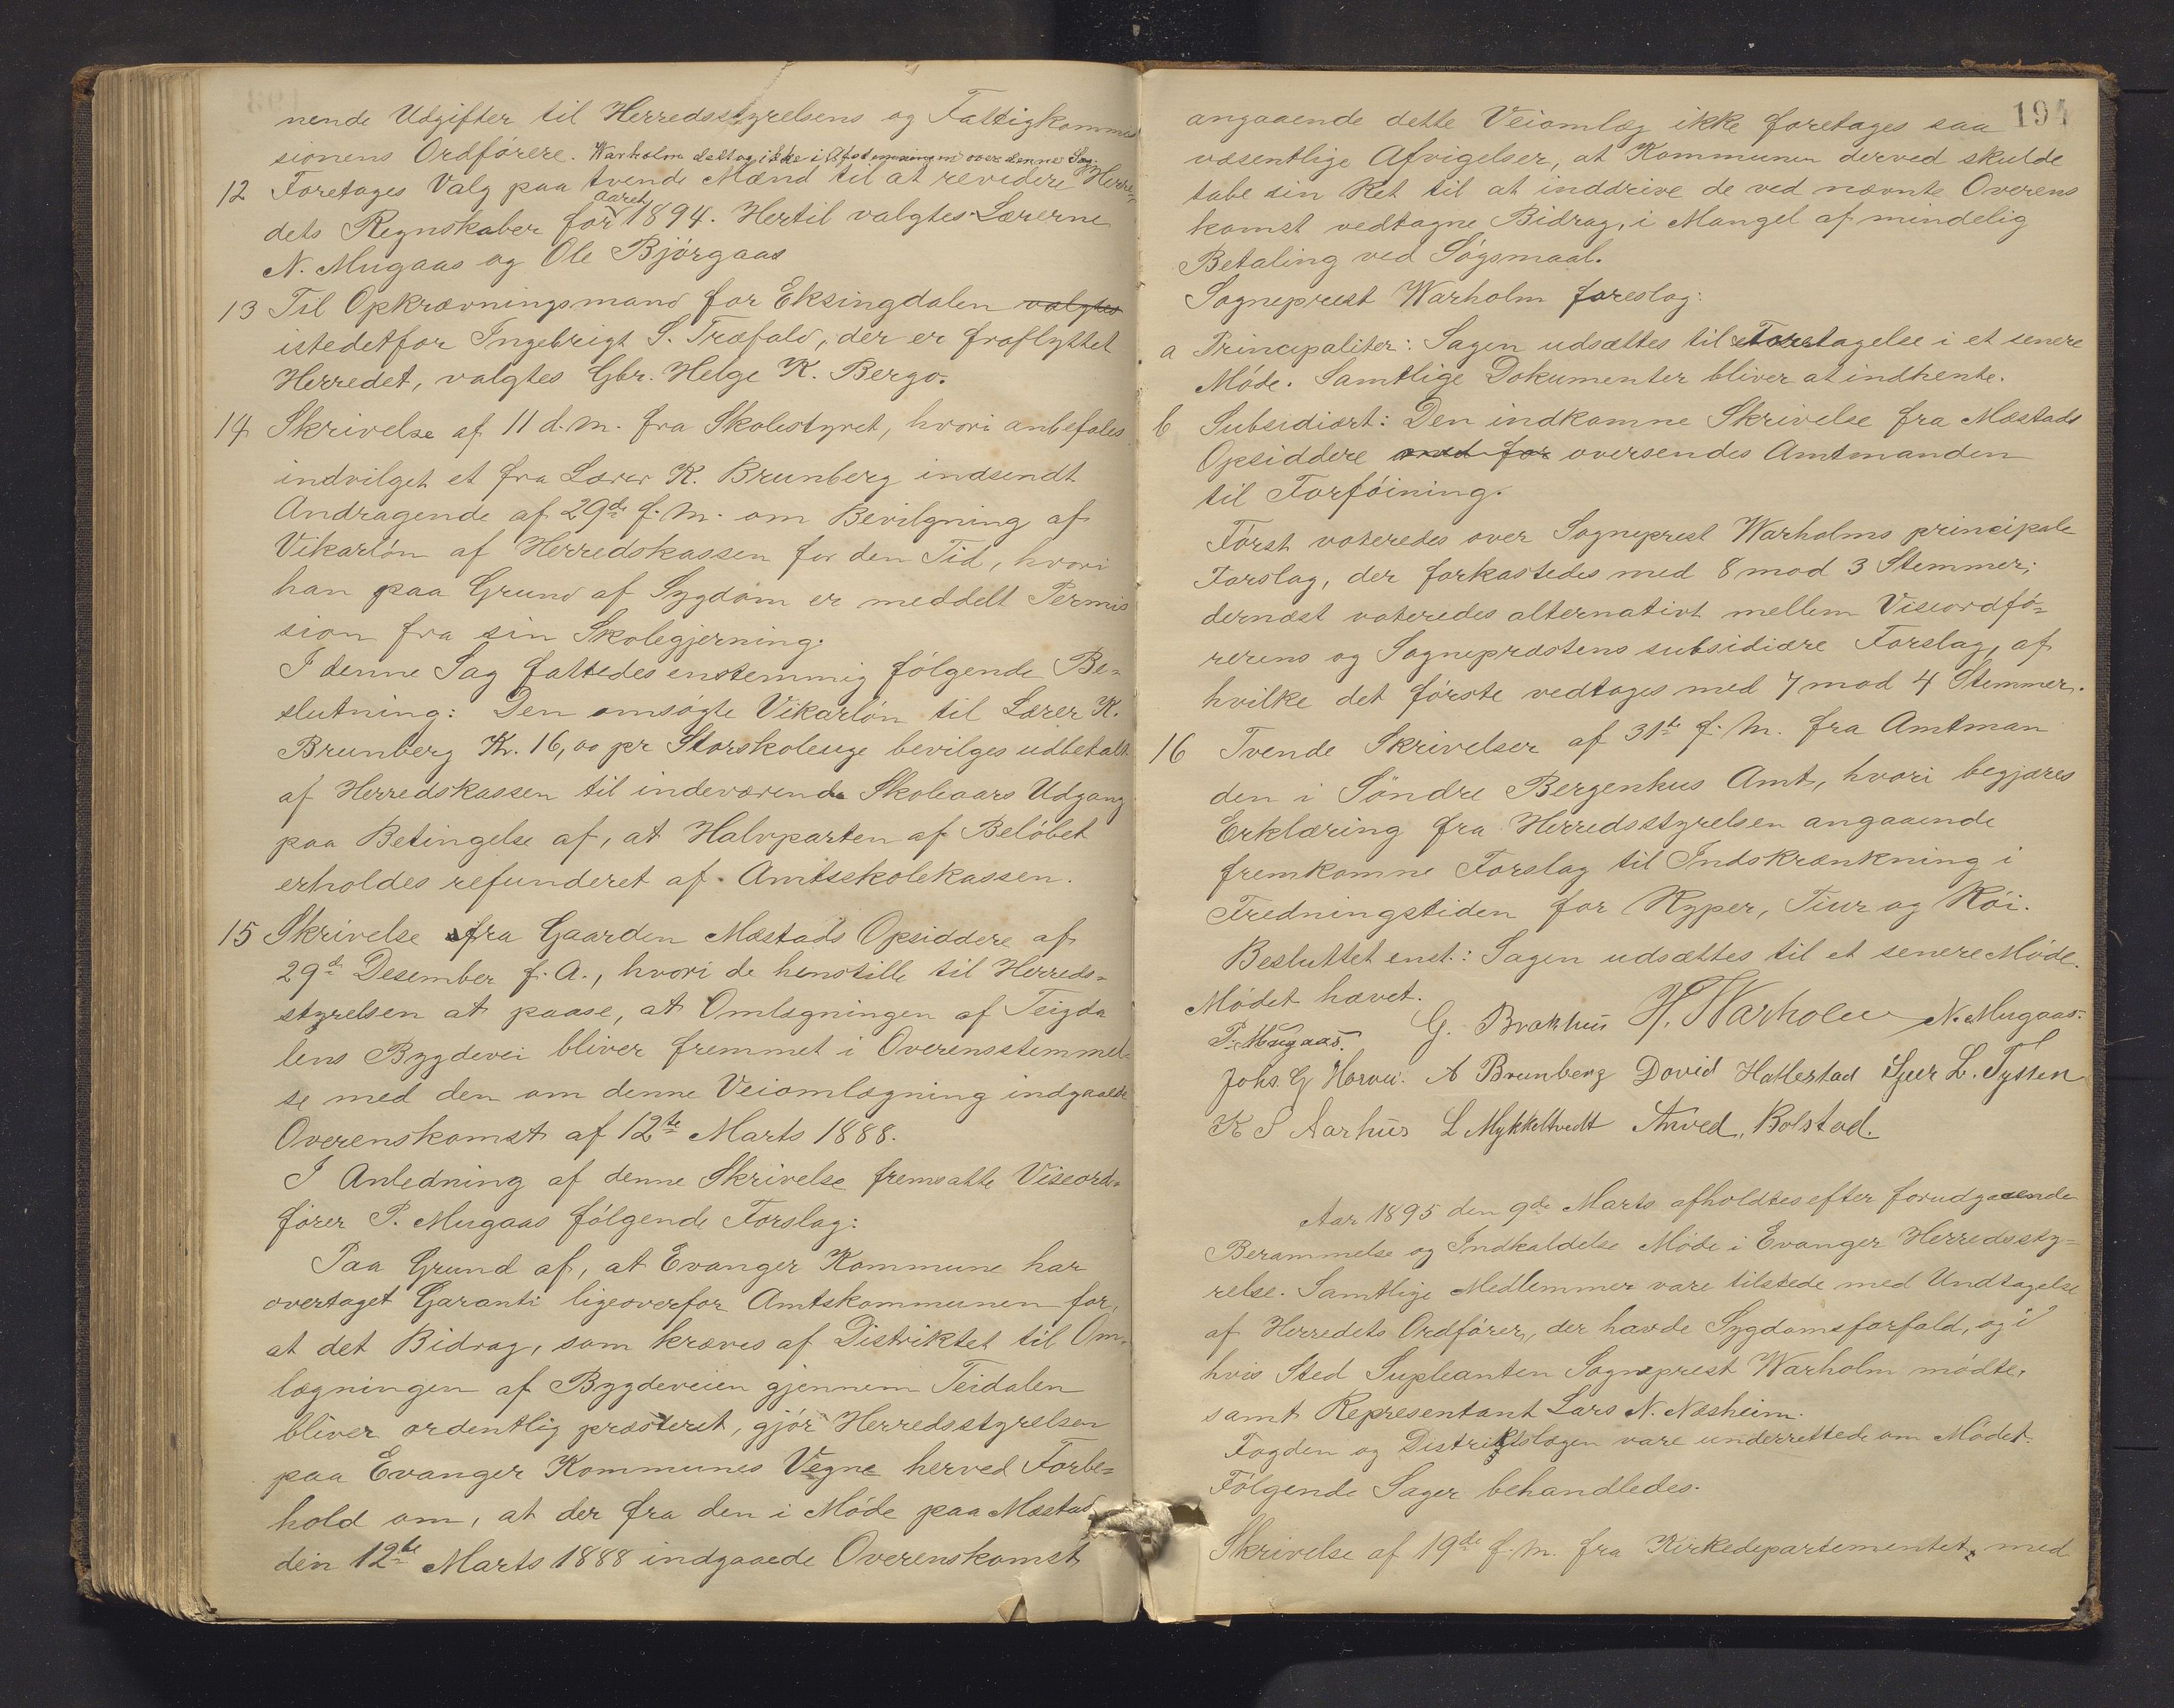 nende Udgifter til Herredsstyrelsens og Fattigkommis
sionens Ordförere. Warholm deltog ikke i Afstemningen over denne Sag.
12 Foretages Valg paa tvende Mænd til at revidere Herre-
dets Regnskaber for aaret 1894. Hertil valgtes Lærerne
N. Mugaas og Ole Bjørgaas
13 Til Opkrævningsmand for Eksingdalen valgtes
istedetfor Ingebrigt S. Træfald, der er fraflyttet
Herredet, valgtes Gbr. Helge K. Bergo.
14 Skrivelse af 11 d. M. fra Skolestyret, hvori anbefales
indvilget et fra Lærer K. Brunberg indsendt
Andragende af 29de f. M. om Bevilgning af
Vikarløn af Herredskassen for den Tid, hvori
han paa Grund af Sygdom er meddelt Permis
sion fra sin Skolegjerning.
I denne Sag fattedes enstemmig følgende Be-
slutning: Den omsøgte Vikarløn til Lærer K.
Brunberg Kr. 16,00 pr Storskoleuge bevilges udbetalt
af Herredskassen til indeværende Skoleaars Udgang
paa Betingelse af, at Halvparten af Beløbet
erholdes refunderet af Amtsskolekassen.
15 Skrivelse fra Gaarden Mæstads Opsiddere af
29de Desember f. A., hvori de henstille til Herreds-
styrelsen at paase, at Omlægningen af Teigda
lens Bygdevei bliver fremmet i Overensstemmel-
se med den om denne Veiomlægning indgaaede
Overenskomst af 12te Marts 1888.
I Anledning af denne Skrivelse fremsatte Viseord-
fører P. Mugaas følgende Forslag:
Paa Grund af, at Evanger Kommune har
overtaget Garanti ligeoverfor Amtskommunen for,
at det Bidrag, som kræves af Distriktet til Om-
lægningen af Bygdeveien gjennem Teidalen
bliver ordentlig præsteret, gjør Herredsstyrelsen
paa Evanger Kommunes Vegne herved Forbe-
hold om, at der fra den i Møde paa Mæstad
den 12te Marts 1888 indgaaede Overenskomst
194
angaaende dette Veiomlæg ikke foretages saa
væsentlige Afvigelser, at Kommunen derved skulde
tabe sin Ret til at inddrive de ved nævnte Overens
komst vedtagne Bidrag, i Mangel af mindelig
Betaling ved Søgsmaal.
Sogneprest Warholm foreslog:
a Principaliter: Sagen udsættes til Foretagelse i et senere
Møde. Samtlige Dokumenter bliver at indhente.
b Subsidiært: Den indkomne Skrivelse fra Mæstads
Opsiddere med for oversendes Amtmanden
til Forføining.
Først voteredes over Sogneprest Warholms principale
Forslag, der forkastedes med 8 mod 3 Stemmer;
dernæst voteredes alternativt mellem Viseordfø-
rerens og Sogneprestens subsidiære Forslag, af
hvilke det første vedtages med 7 mod 4 Stemmer.
16 Tvende Skrivelser af 31te f. M. fra Amtman
den i Søndre Bergenhus Amt, hvori begjæres
Erklæring fra Herredsstyrelsen angaaende
fremkomne Forslag til Indskrænkning i
Fredningstiden for Ryper, Tiur og Røi.
Besluttet enst.: Sagen udsættes til et senere Møde.
Mødet hævet.
P. Mugaas. G. Brakhus H. Warholm N. Mugaas.
Johs. G Horvei. A Brunberg David Hallestad Sjur L. Tyssen
K S Aarhus L Mykkeltvedt Anved. Bolstad.
Aar 1895 den 9de Marts afholdtes efter forudgaaende
Berammelse og Indkaldelse Møde i Evanger Herredssty-
relse. Samtlige Medlemmer vare tilstede med Undtagelse
af Herredets Ordfører, der havde Sygdomsforfald, og i
hvis Sted Supleanten Sogneprest Warholm mødte,
samt Representant Lars N. Næsheim.
Fogden og Distriktslægen vare underrettede om Mødet.
Følgende Sager behandledes.
Skrivelse af 19de f. M. fra Kirkedepartementet, med